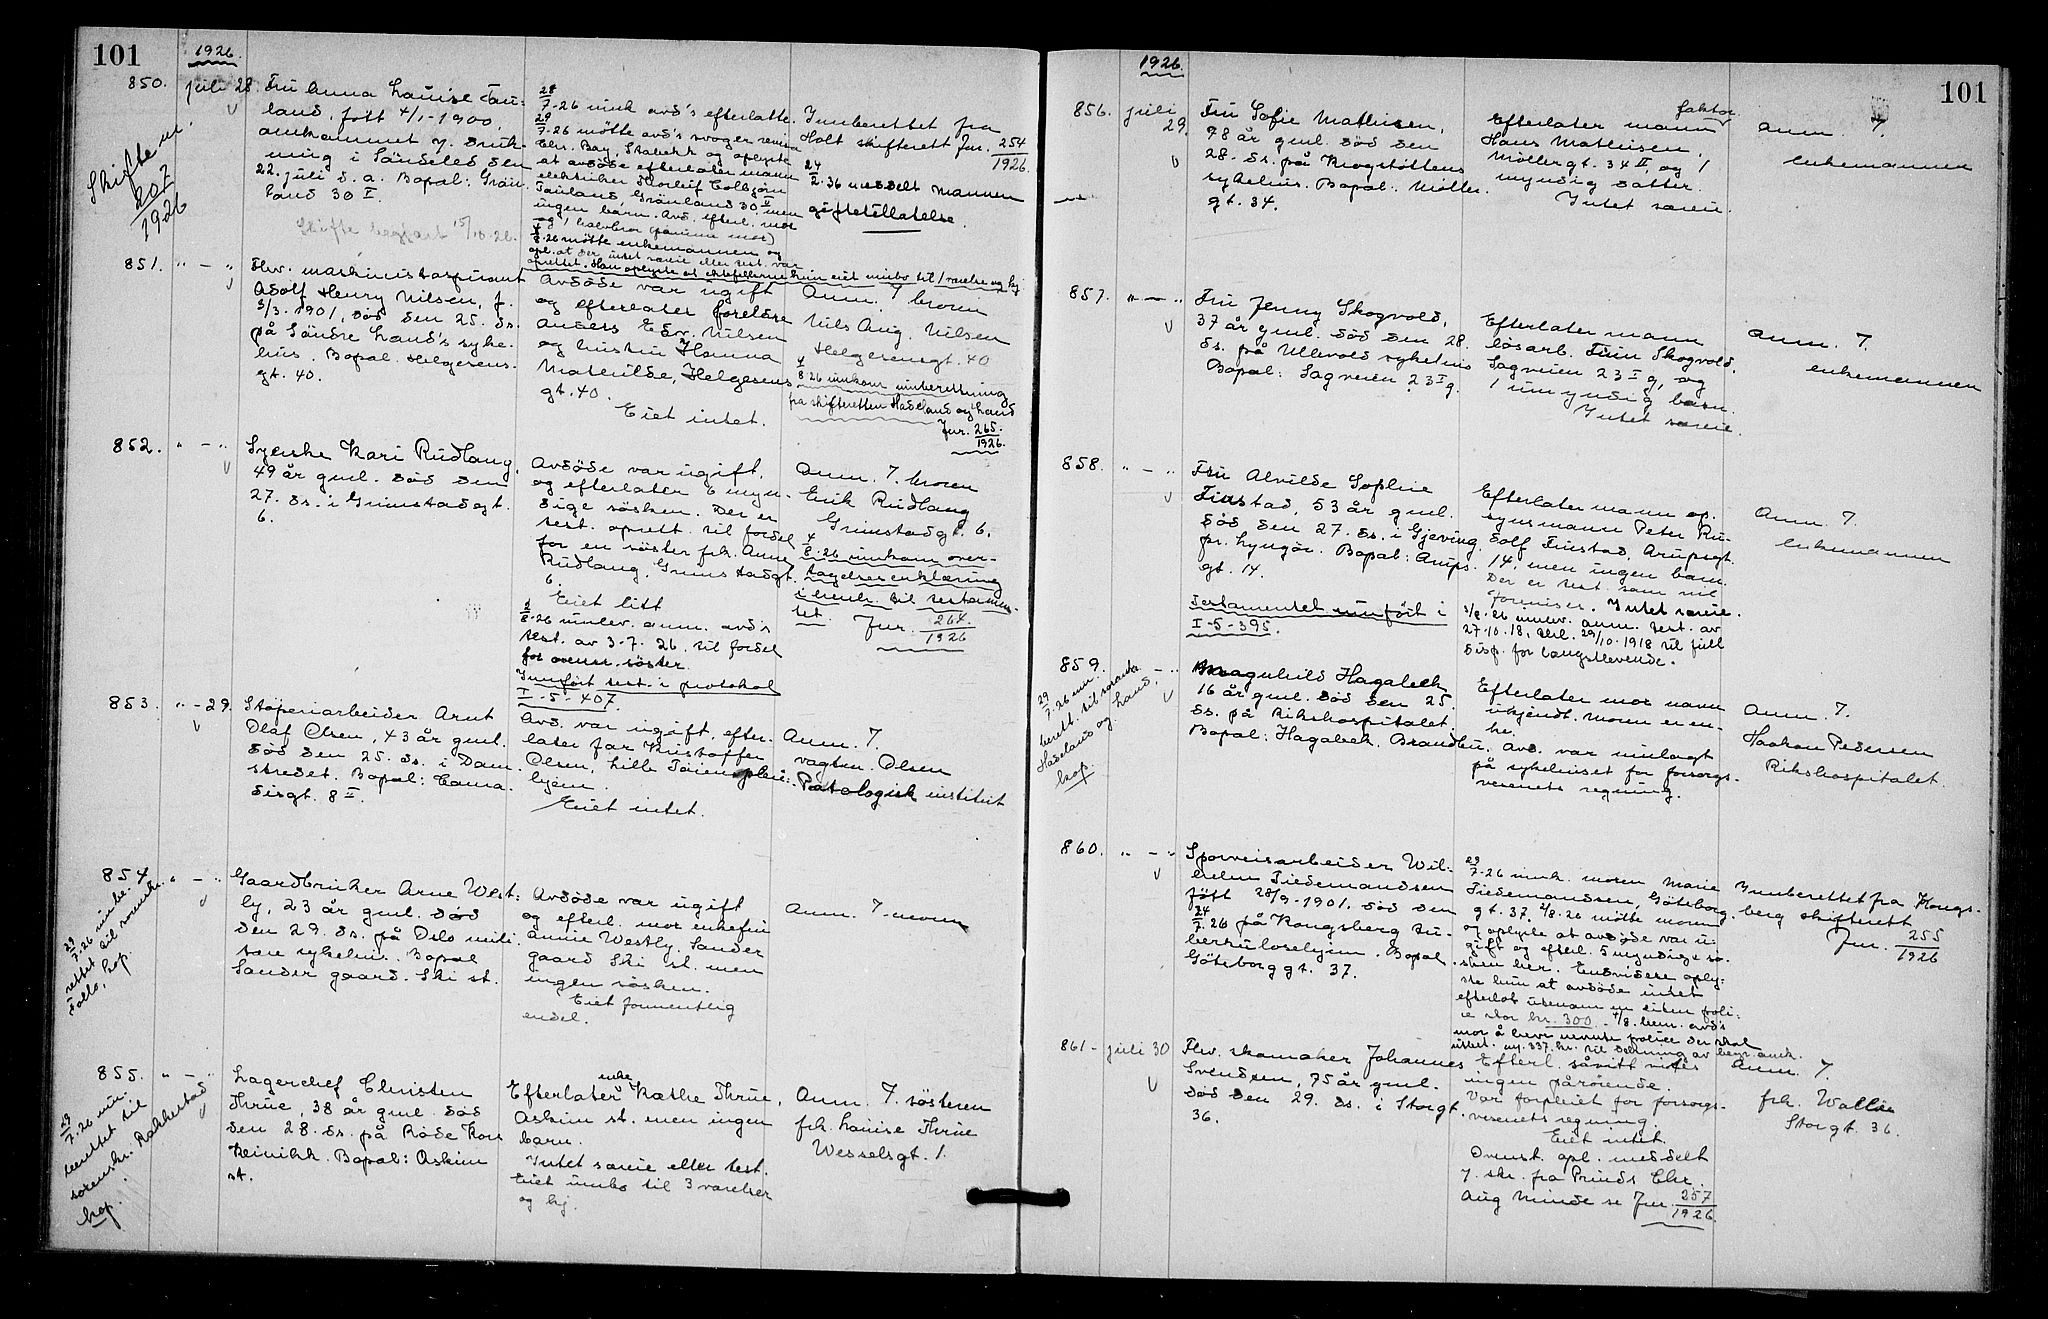 101
1926.
850. juli 28 Fru Anna Louise Tau-
land, født 4/1-1900,
omkommet v. druk-
ning i Søndeled den
22. juli d.a. Bopæl: Grøn-
land 30 I.
Skifte begjært 15/10.26.
Skiftem.
207
1926
28/7.26 innk. avd's efterlatte.
29/7.26 møtte avd's svoger
Chr. Bay, Stabekk og oplyste
at avdøde efterlater mann
elektriker Thorleif Torbjørn
Tauland, Grønland 30 II men
ingen barn. Avd. efterl. mor
og 1 halvbror (samme mor)
møtte enkemannen og
opl. at der intet særeie eller test. var
oprettet. Han oplyste at ektefellerne kun eiet innbo til 1 værelse og kj.
Innberettet fra
Holt skifterett Jnr. 254
1926.
24/2.36 meddelt mannen
giftetillatelse.
851. " — " Fhv. maskinistaspirant
Adolf Henry Nilsen, f.
3/3.1901, død den 25. ds.
på Søndre Land's syke-
hus. Bopæl: Helgesens-
gt. 40.
Avdøde var ugift
og efterlater foreldre
Anders Edv. Nilsen
og hustru Hanna
Mathilde, Helgesens
gt. 40.
Eiet intet.
Anm. 7 broren
Nils Aug. Nilsen
Helgesensgt. 40
4/8.26 innkom innberetning
fra skifteretten Hadeland og Land
Jnr. 265.
1926.
852. " — " Syerske Kari Rudlang,
49 år gml. død den
27. ds. i Grimstadgt.
6.
Avdøde var ugift,
og efterlater 6 myn-
dige søsken. Der er
test. oprett. til fordel
for en søster frk. Anne
Rudlang, Grimstadgt.
6.
Eiet litt
2/8.26 innlev. anm. avd's
test. av 3-7.26 til fordel
for ovenn. søster.
Innført test. i protokol
I-5-407.
Anm. 7. broren
Erik Rudlang
Grimstadgt. 6.
4/8.26 innkom over-
tagelseserklæring
i henh. til testamen-
tet. Jnr. 264.
1926
853. " — 29. Støperiarbeider Arnt
Olaf Olsen, 43 år gml.
død den 25. ds. i Dam-
stredet. Bopæl: Corna-
disgt. 8 II.
Avd. var ugift, efter-
later far Kristoffer
Olsen, Lille Tøien pleie-
hjem.
Eiet intet.
Anm. 7.
vagtm. Olsen
Patologisk institut
854. " — " Gaardbruker Arne West-
ly, 23 år gml. død
den 29. ds. på Oslo mili-
tære sykehus. Bopæl
Sander gaard. Ski st.
29/7.26 innbe-
rettet til sorenskr.
Follo,
kop.
Avdøde var ugift
og efterl. mor enkefru
Annie Westly, Sander
gaard Ski st. men
ingen søsken.
Eiet formentlig
endel.
Anm. 7. moren
855. " — " Lagerchef Christen
Thrue, 38 år gml. død
den 28. ds. på Røde Kors
klinikk. Bopæl: Askim
st.
29/7.26 inn-
berettet til
sorenskr. Rakkestad
kop.
Efterlater enke Kathe Thrue,
Askim st. men ingen
barn.
Intet særeie eller test.
Eiet innbo til 3 værelser
og kj.
Anm. 7. søsteren
frk. Louise Thrue
Wesselsgt. 1.
1926.
101
856. juli 29. Fru Sofie Mathisen,
78 år gml. død den
28. ds. på Krogstøttens
sykehus. Bopæl: Møller-
gt. 34.
Efterlater mann faktor
Hans Mathisen,
Møllergt. 34 II, og 1
myndig datter.
Intet særeie.
Anm. 7.
enkemannen
857. " — " Fru Jenny Skogvold,
37 år gml. død den 28.
ds. på Ullevold sykehus
Bopæl: Sagveien 23 I g.
Efterlater mann
løsarb. Finn Skogvold,
Sagveien 23 I g, og
1 umyndig barn.
Intet særeie.
Anm. 7.
enkemannen
858. " — " Fru Alvilde Sophie
Finstad, 53 år gml.
død, den 27. ds. i Gjeving
pr. Lyngør. Bopæl: Arups-
gt. 14.
Testamentet innført i
I-5-395.
Efterlater mann op-
synsmann Peter Ru-
dolf Finstad, Arupsgt.
14, men ingen barn.
Der er test. som vil
foreviser. Intet særeie.
3/8.26 innlev. anm. test. av
27.10.18, 29/10.1918 til full
disp. for længstlevende.
Anm. 7.
enkemannen
859. " — " Magnhild Hagabek
16 år gml. død den 25.
ds. på Rikshospitalet,
Bopæl: Hagabek. Brandbu.
29/7.26 inn-
berett. til sorenskr.
Hadeland og Land.
kop.
Efterlater mor navn
ukjendt. Moren er en-
ke. Avd. var innlagt
på sykehuset for forsorgs-
vesenets regning.
Anm. 7.
Haakon Pedersen
Rikshospitalet.
860. " — " Sporveisarbeider Wil-
helm Tiedemandsen
født 28/9-1901, død den
24/7.26 på Kongsberg tu-
berkulosehjem. Bopæl
Göteborggt. 37.
29/7.26 innk. moren Marie
Tiedemandsen, Göteborg-
gt. 37. 2/8.26 møtte moren
og oplyste at avdøde var u-
gift og efterl. 5 myndige sø-
sken her. Endvidere oply-
ste hun at avdøde intet
efterlot utenom en liten poli-
se stor kr. 300. - 4/8. bem. avd's
mor å heve nevnte police der skal
utbet. m. 337 kr. til dekning av begr. omk.
Innberettet fra Kongs-
berg skifterett
Jnr. 255
1926
861 - juli 30 Fhv. skomaker Johannes
Svendsen, 75 år gml.
død den 29. ds. i Storgt.
36.
Efterl. såvitt vites
ingen pårørende.
Var forpleiet for forsorgs-
vesenets regning.
Eiet intet.
Ovenst. opl. meddelt
v. skr. fra Prinds Chr.
Aug Minde se Jnr. 257
1926.
Anm. 7.
frk. Wallie
Storgt. 36.